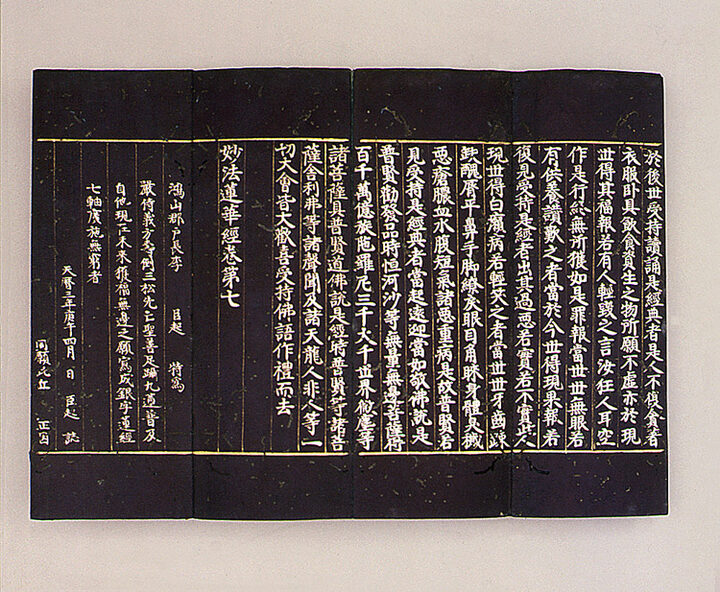 於後世受持讀誦是經典者是人不復貪著
衣服臥具飲食資生之物所願不虛亦於現
世得其福報若有人輕毀之言汝狂人耳空
作是行終無所獲如是罪報當世世無眼若
有供養讚歎之者當於今世得現果報若
復見受持是經者出其過惡若實若不實此人
現世得白癩病若輕笑之者當世世牙齒踈
缺醜脣平鼻手脚繚戾眼目角睞身體臭穢
惡瘡膿血水腹短氣諸惡重病是故普賢若
見受持是經典者當起遠迎當如敬佛說是
普賢勸發品時恒河沙等無量無邊菩薩得
百千萬億旋陀羅尼三千大千世界微塵等
諸菩薩具普賢道佛說是經時普賢等諸菩
薩舍利弗等諸聲聞及諸天龍人非人等一
切大會皆大歡喜受持佛語作禮而去
妙法蓮華經卷第七
鴻山郡戶長李 臣起 特寫
嚴侍義方倒三松先亡聖善足踰九蓮普及
自他現在未來獲福無邊之願寫成銀字蓮經
七軸廣施無窮者
天曆三年庚午四月 日 臣起 誌
同願比丘 正因